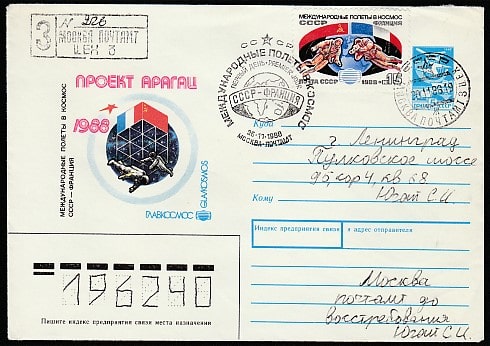 З
N 226
МОСКВА ПОЧТАМТ
ЦЕХ 3
МЕЖДУНАРОДНЫЕ ПОЛЕТЫ В КОСМОС
СССР ФРАНЦИЯ
ПОЧТА СССР 1988
15
СССР
МЕЖДУНАРОДНЫЕ ПОЛЕТЫ В КОСМОС
ПЕРВЫЙ ДЕНЬ • PREMIER JOUR
СССР-ФРАНЦИЯ
26-11-1988
МОСКВА-ПОЧТАМТ
МОСКВА ПОЧТАМТ
ПРОЕКТ АРАГАЦ
1988
МЕЖДУНАРОДНЫЕ ПОЛЕТЫ В КОСМОС
СССР — ФРАНЦИЯ
ГЛАВКОСМОС
GLAVKOSMOS
Куда
г. Ленинград
Пулковское шоссе
д5, кор 4, кв 68
Кому
Югай С.И.
Индекс предприятия связи и адрес отправителя
Москва
почтамт до
востребования
Югай С.И.
196240
Пишите индекс предприятия связи места назначения